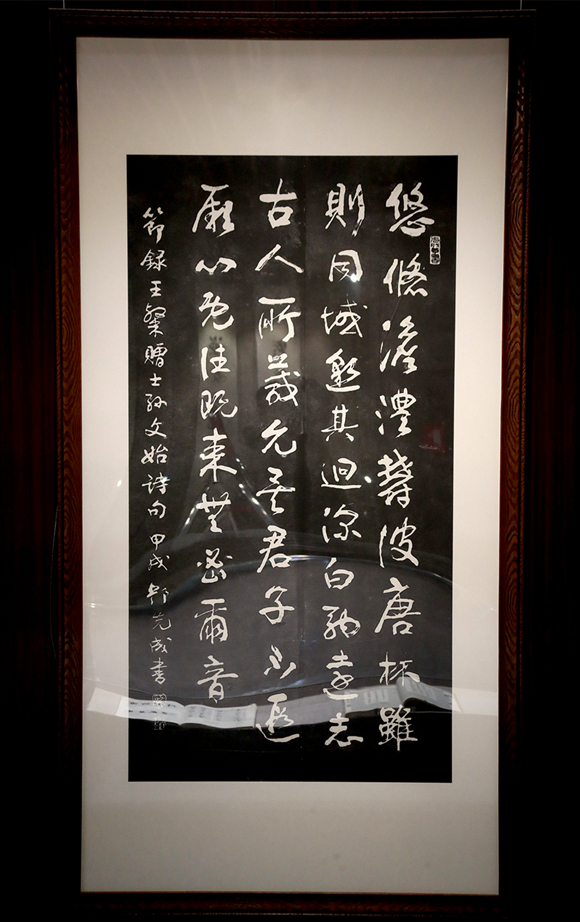 悠悠澹澧鬱彼唐林雖
則同域邈其迥深白駒遠志
古人所箴允矣君子不遐
厥心既往既來無密爾音
節錄王粲贈士孫文始詩句 甲戌 成書